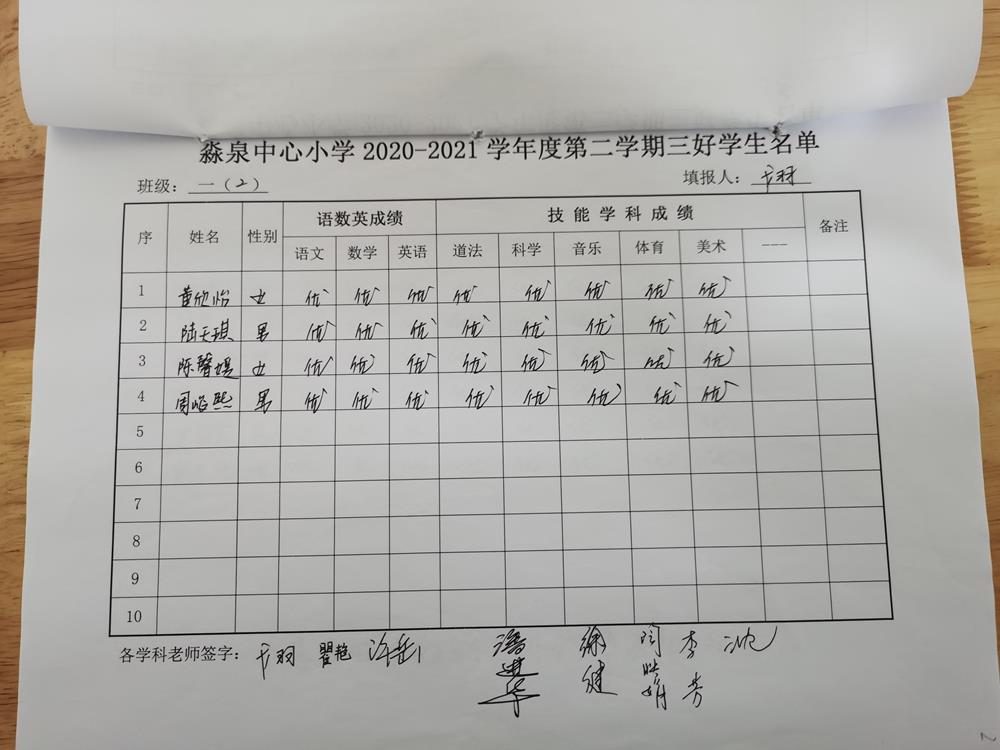 淼泉中心小学 2020-2021 学年度第二学期三好学生名单
班级： 一（2） 填报人： 卞羽
序 姓名 性别 语数英成绩 技能学科成绩 备注
语文 数学 英语 道法 科学 音乐 体育 美术 ---
1 黄欣怡 女 优 优 优 优 优 优 优 优
2 陆天琪 男 优 优 优 优 优 优 优 优
3 陈馨媞 女 优 优 优 优 优 优 优 优
4 周皓熙 男 优 优 优 优 优 优 优 优
5
6
7
8
9
10
各学科老师签字： 卞羽 瞿艳 潘进华 徐健 闵 李芳 沈